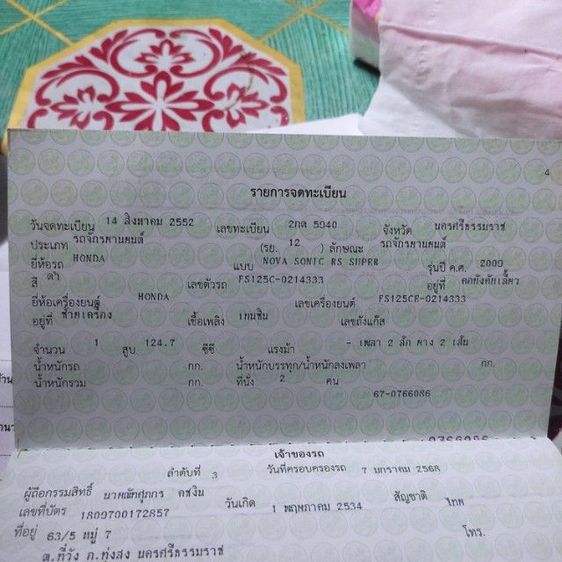 4
รายการจดทะเบียน
วันจดทะเบียน 14 สิงหาคม 2552 เลขทะเบียน 2กด 5940 จังหวัด นครศรีธรรมราช
ประเภท รถจักรยานยนต์ (รย. 12 ) ลักษณะ รถจักรยานยนต์
ยี่ห้อรถ HONDA แบบ NOVA SONIC RS SUPER รุ่นปี ค.ศ. 2009
สี ดำ เลขตัวรถ FS125C-0214333 อยู่ที่ คอบังคับเลี้ยว
ยี่ห้อเครื่องยนต์ HONDA เลขเครื่องยนต์ FS125CE-0214333
อยู่ที่ ซ้ายเครื่อง เชื้อเพลิง เบนซิน เลขถังแก๊ส
จำนวน 1 สูบ 124.7 ซีซี แรงม้า - เพลา 2 ล้อ ยาง 2 เส้น
น้ำหนักรถ กก. น้ำหนักบรรทุก/น้ำหนักลงเพลา กก.
น้ำหนักรวม กก. ที่นั่ง 2 คน
67-0766086
0766086
เจ้าของรถ
ลำดับที่ 3 วันที่ครอบครองรถ 7 มกราคม 2568
ผู้ถือกรรมสิทธิ์ นายณัทศุภกร คชเงิน
เลขที่บัตร 1809700172857 วันเกิด 1 พฤษภาคม 2534 สัญชาติ ไทย
ที่อยู่ 63/5 หมู่ 7 โทร.
ต.ที่วัง อ.ทุ่งสง นครศรีธรรมราช